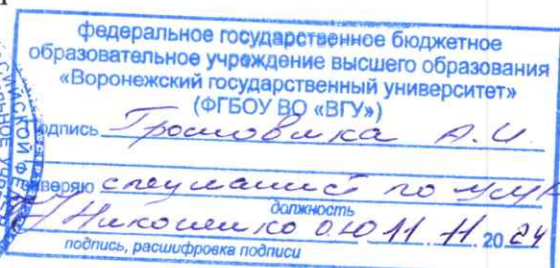 федеральное государственное бюджетное
образовательное учреждение высшего образования
«Воронежский государственный университет»
(ФГБОУ ВО «ВГУ»)
одпись А.И.
заверяю специалист по
должность
О.Ю 11 11 20 24
подпись, расшифровка подписи